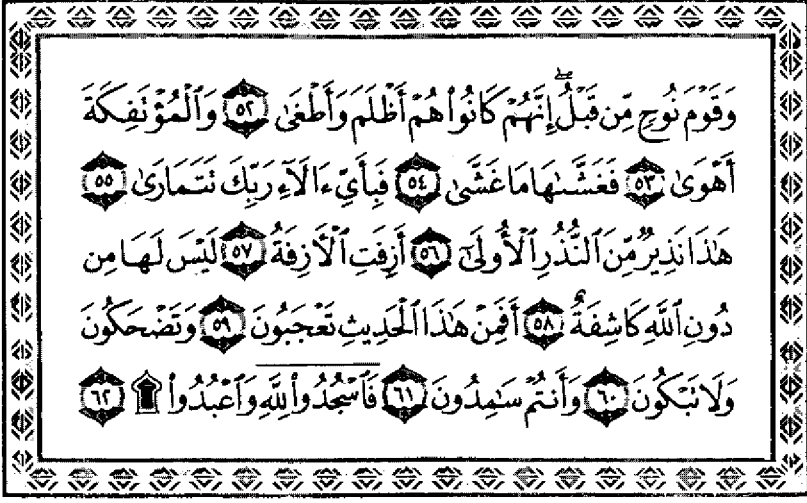 وَقَوْمَ نُوحٍ مِّن قَبْلُ ۖ إِنَّهُمْ كَانُوا۟ هُمْ أَظْلَمَ وَأَطْغَىٰ ٥٢ وَٱلْمُؤْتَفِكَةَ
أَهْوَىٰ ٥٣ فَغَشَّىٰهَا مَا غَشَّىٰ ٥٤ فَبِأَىِّ ءَالَآءِ رَبِّكَ تَتَمَارَىٰ ٥٥
هَٰذَا نَذِيرٌ مِّنَ ٱلنُّذُرِ ٱلْأُولَىٰٓ ٥٦ أَزِفَتِ ٱلْءَازِفَةُ ٥٧ لَيْسَ لَهَا مِن
دُونِ ٱللَّهِ كَاشِفَةٌ ٥٨ أَفَمِنْ هَٰذَا ٱلْحَدِيثِ تَعْجَبُونَ ٥٩ وَتَضْحَكُونَ
وَلَا تَبْكُونَ ٦٠ وَأَنتُمْ سَٰمِدُونَ ٦١ فَٱسْجُدُوا۟ لِلَّهِ وَٱعْبُدُوا۟ ۩ ٦٢